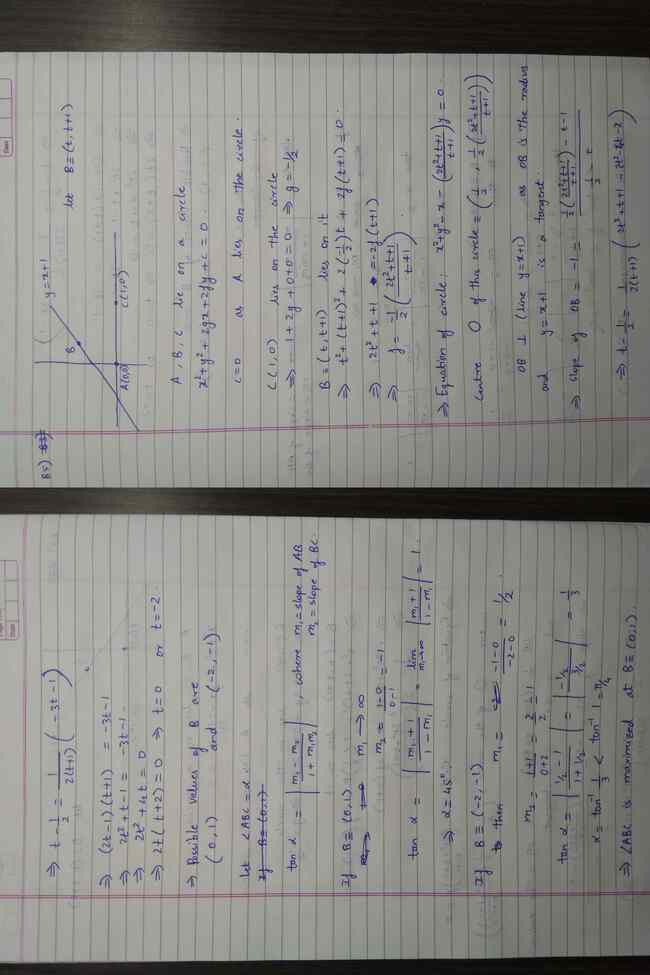 B5)
y=x+1
let B≡(t, t+1)
B
A(0,0)
C(1,0)
A, B, C lie on a circle
x²+y²+2gx+2fy+c=0
c=0 as A lies on the circle.
C(1,0) lies on the circle
⇒ 1+2g+0+0=0 ⇒ g=-1/2.
B≡(t, t+1) lies on it
⇒ t²+(t+1)²+2(-1/2)t+2f(t+1)=0.
⇒ 2t²+t+1 = -2f(t+1)
⇒ f = -1/2 (2t²+t+1 / t+1).
⇒ Equation of circle: x²+y²-x-(2t²+t+1 / t+1)y=0.
Centre O of this circle = (1/2, 1/2(2t²+t+1 / t+1))
OB ⊥ (line y=x+1) as OB is the radius
and y=x+1 is a tangent.
⇒ slope of OB = -1 = 1/2(2t²+t+1 / t+1) - t-1 / 1/2 - t
⇒ t-1/2 = 1/2(t+1) (2t²+t+1-2t²-4t-2)
Date
⇒ t-1/2 = 1/2(t+1) (-3t-1)
⇒ (2t-1)(t+1) = -3t-1
⇒ 2t²+t-1 = -3t-1.
⇒ 2t²+4t=0
⇒ 2t(t+2)=0 ⇒ t=0 or t=-2.
⇒ Possible values of B are
(0,1) and (-2,-1).
let ∠ABC=α.
If B≡(0,1)
tan α = |m₁-m₂ / 1+m₁m₂|, where m₁=slope of AB
m₂=slope of BC.
If B≡(0,1) m₁→∞
m₂ = 1-0 / 0-1 = -1.
tan α = |m₁+1 / 1-m₁| = lim m₁→∞ |m₁+1 / 1-m₁| = 1.
⇒ α=45°.
If B≡(-2,-1)
then m₁ = -1-0 / -2-0 = 1/2.
m₂ = 1+1 / 0+2 = 2/2 = 1
tan α = |1/2-1 / 1+1/2| = |-1/2 / 3/2| = 1/3
α = tan⁻¹ 1/3 < tan⁻¹ 1 = π/4
⇒ ∠ABC is maximized at B≡(0,1).
Date